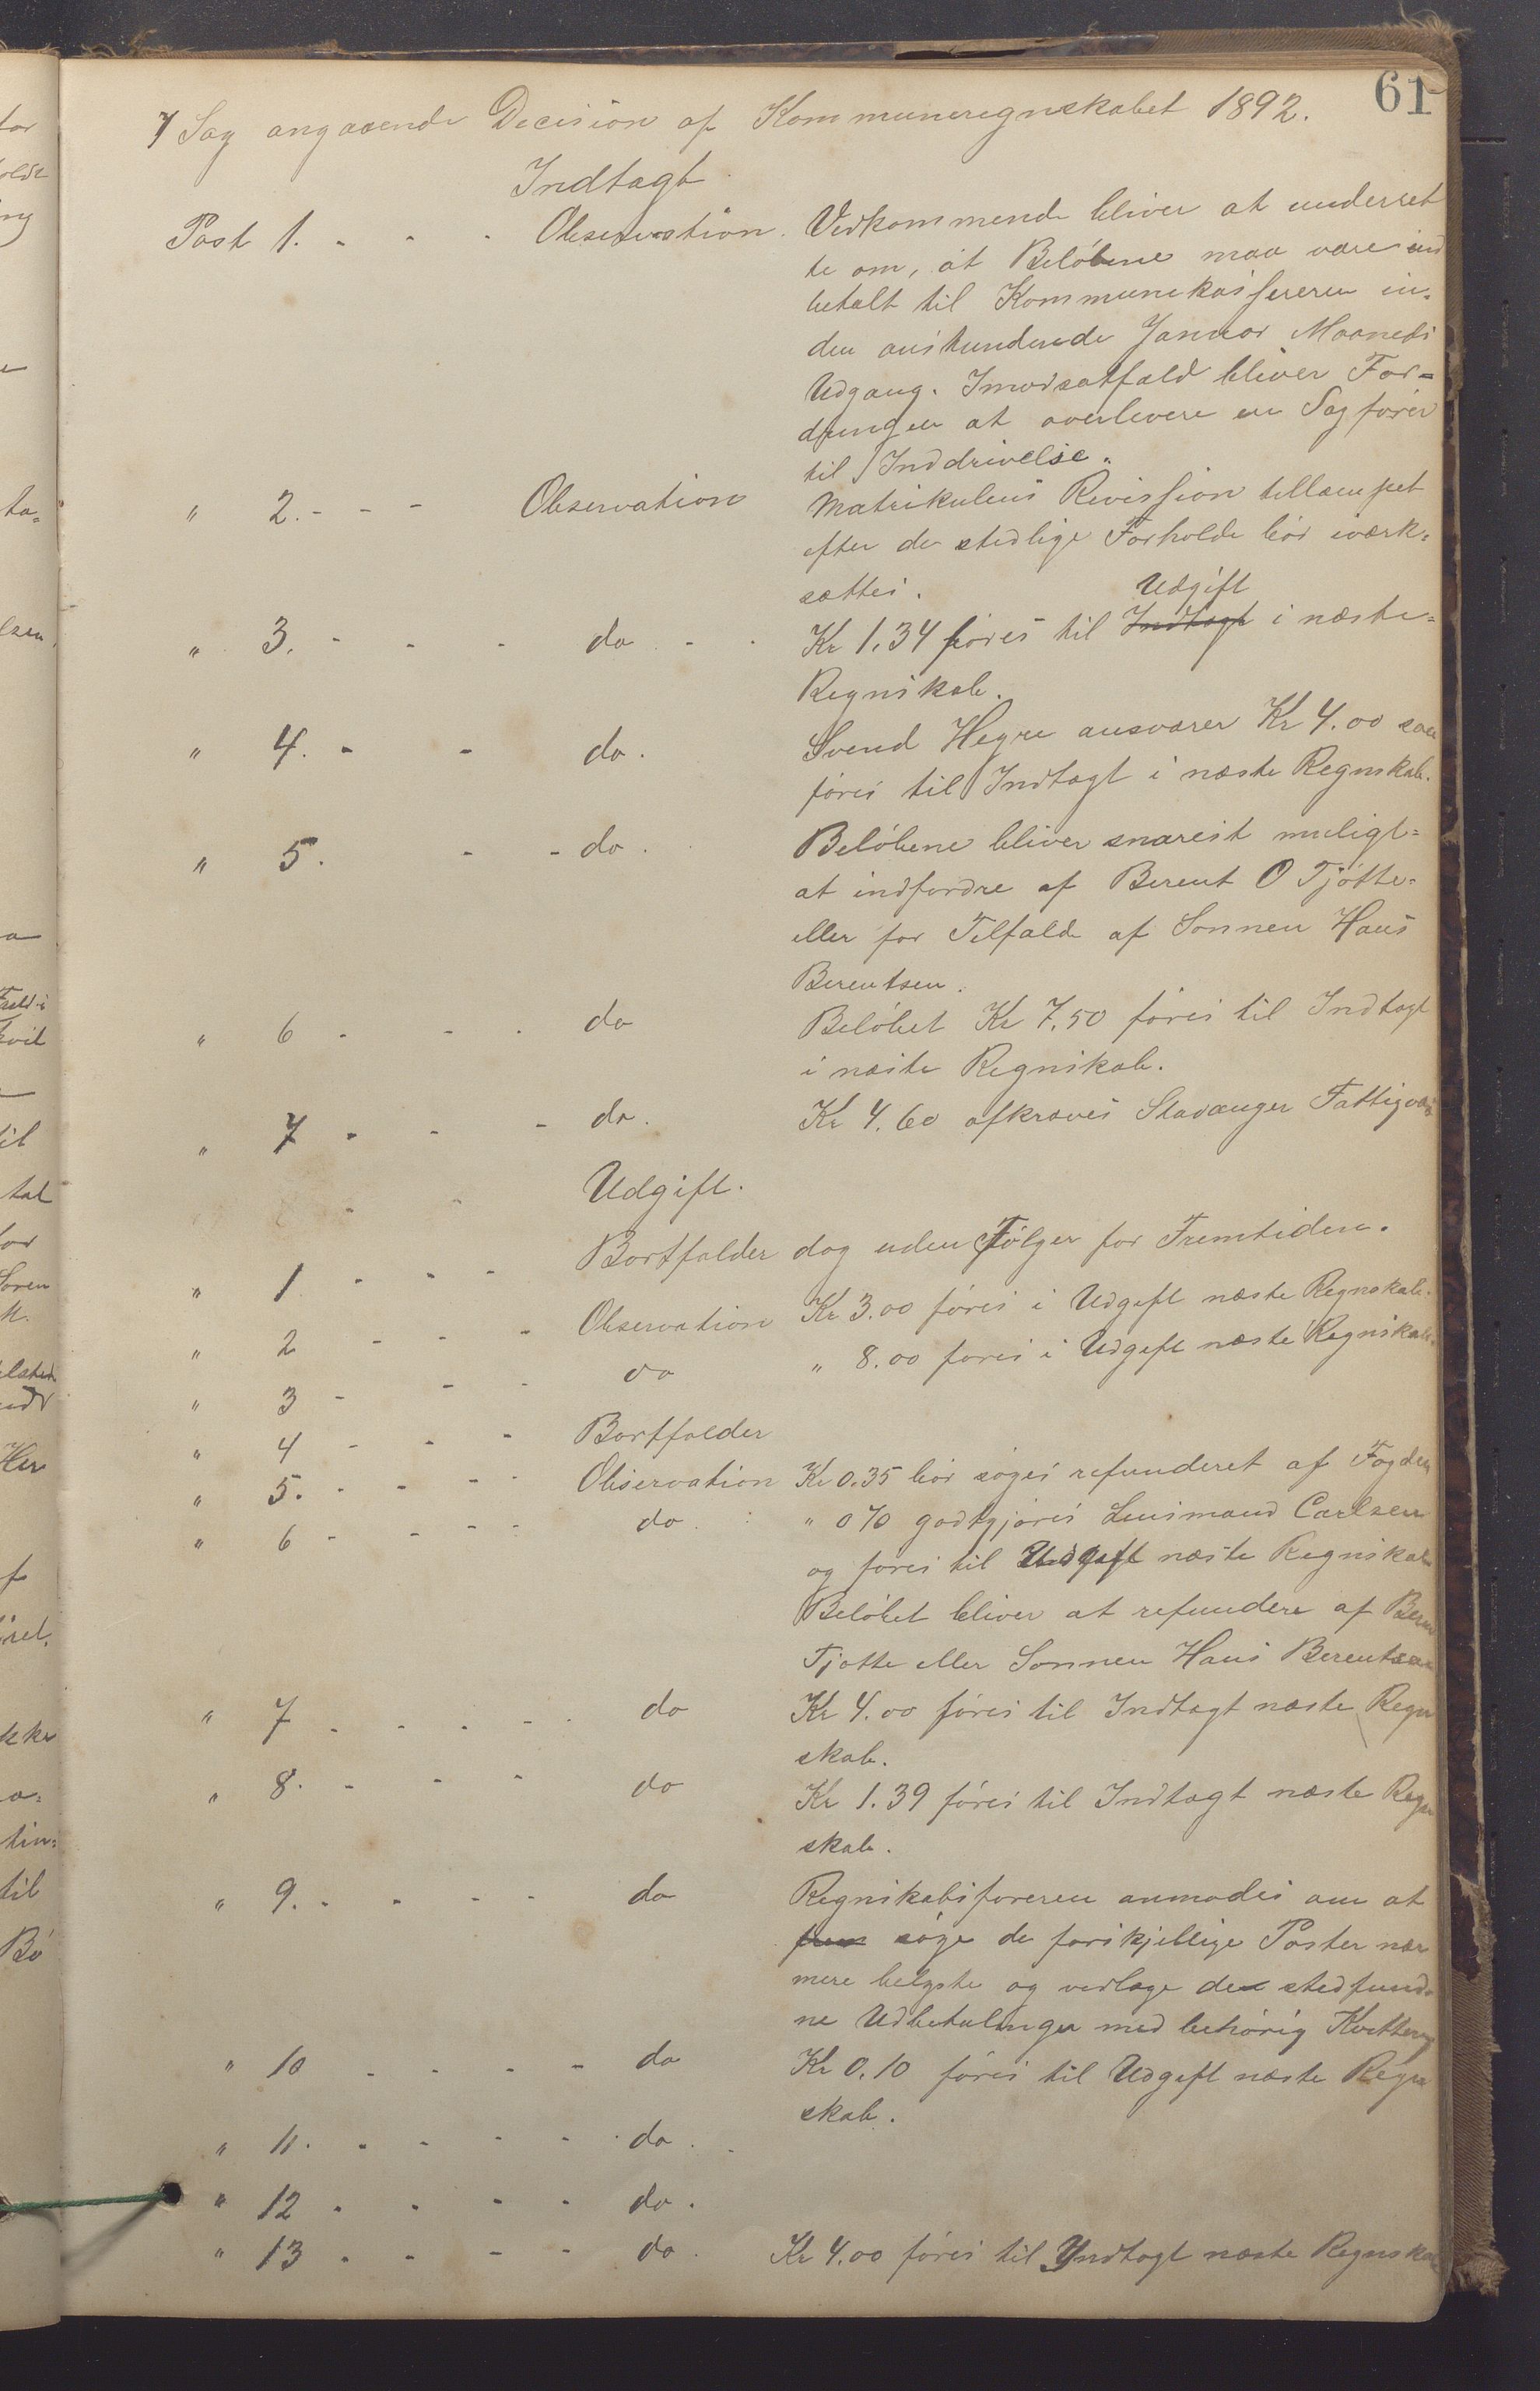 61
7 Sag angaaende Decision af Kommuneregnskabet 1892.
Indtægt
Post 1. - - - Observation. Vedkommende bliver at underret
te om, at Beløbene maa være ind
betalt til Kommunekassereren in-
den anstundende Januar Maaneds
Udgang. Imodsatfald bliver For-
dringen at overlevere en Sagfører
til Inddrivelse.
" 2. - - - Observation Matrikulens Revission tillæmpet
efter de stedlige Forholde bør iværk-
sættes.
Udgift
" 3. - - - do - - Kr 1.34 føres til Indtægt i næste
Regnskab.
" 4. - - do. Svend Hegre ansvarer Kr 4.00 som
føres til Indtægt i næste Regnskab.
" 5. - - do. Beløbene bliver snarest muligt
at indfordre af Berent O Tjøtte
eller for Tilfælde af Sønnen Hans
Berentsen.
" 6 - - - do Beløbet Kr 7.50 føres til Indtægt
i næste Regnskab.
" 7 - - - do. Kr 4.60 afkræves Stavanger Fattigvæs
Udgift.
" 1 - - - Bortfalder dog uden Følger for Fremtiden.
" 2 - - - Observation Kr 3.00 føres i Udgift næste Regnskab.
" 3 - - - do " 8.00 føres i Udgift næste Regnskab.
" 4 - - - Bortfalder
" 5. - - - - Observation Kr 0.35 bør søges refunderet af Fogden
" 6 - - - - do. " 070 godtgjøres Lensmand Carlsen
og føres til Udgift næste Regnskab
Beløbet bliver at refundere af Beren
Tjøtte eller Sønnen Hans Berentsen
" 7 - - - - do Kr 4.00 føres til Indtægt næste Regn
skab.
" 8. - - - do Kr 1.39 føres til Indtægt næste Regn
skab.
" 9. - - - - do Regnskabsføreren anmodes om at
frem søge de forskjellige Poster nær
mere belyste og vedlæge de stedfund-
ne Udbetalinger med behørig Kvittering
" 10 - - - - do Kr 0.10 føres til Udgift næste Regn
skab.
" 11. - - - - do. -
" 12 - - - - do.
" 13 - - - - do. Kr 4.00 føres til Indtægt næste Regnskab